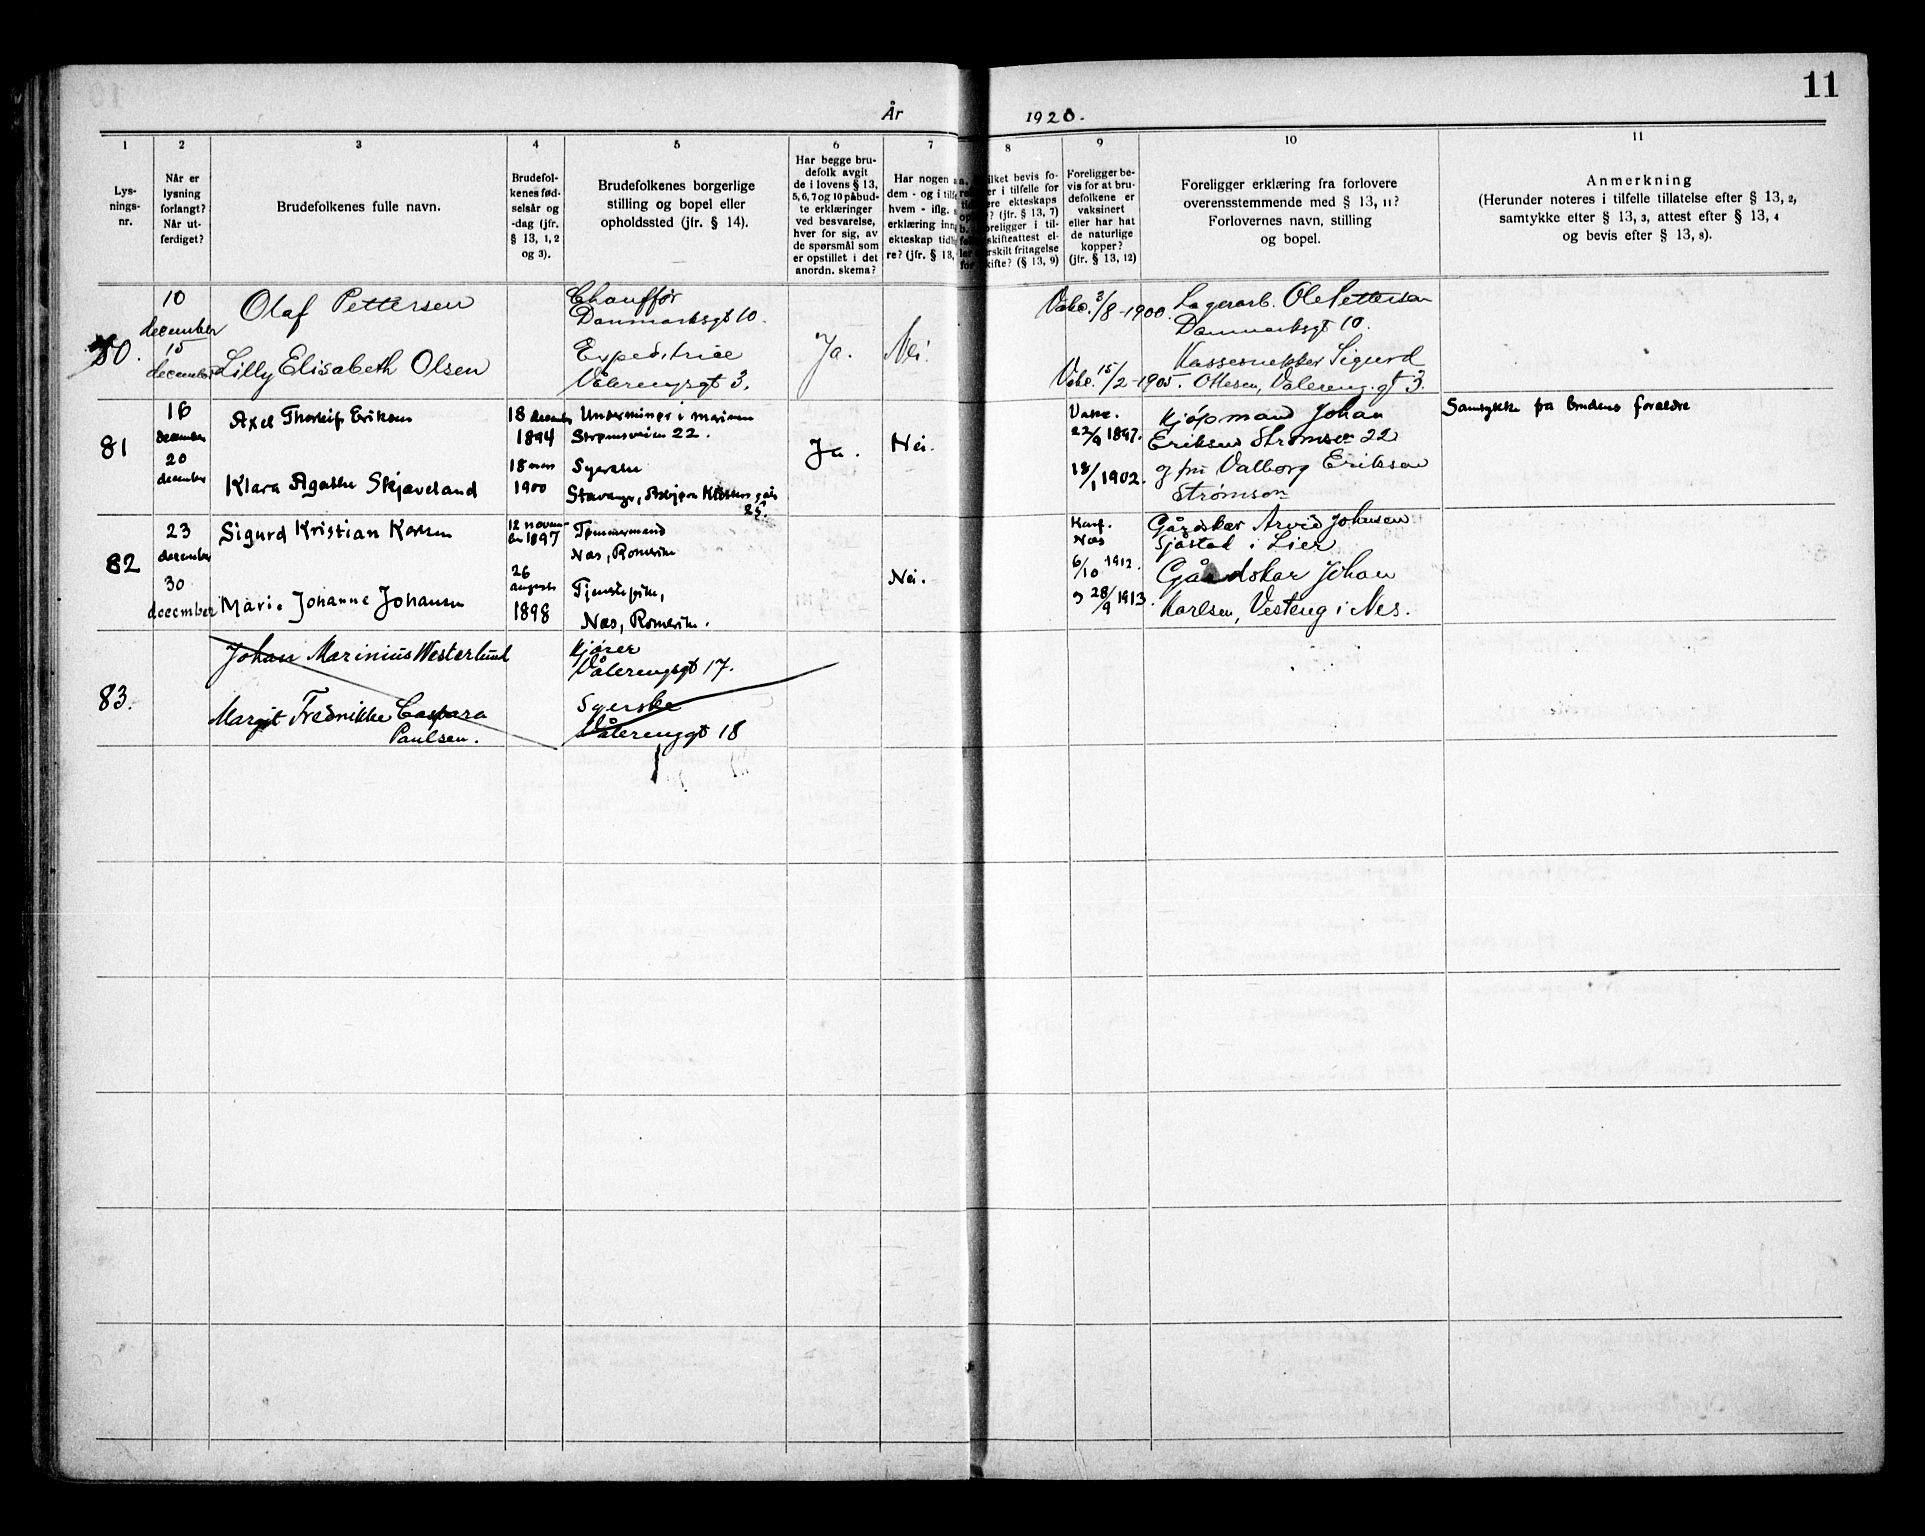 11
År 1920.
1
2
3
4
5
6
7
8
9
10
11
Lys-
nings-
nr.
Når er
lysning
forlangt?
Når ut-
ferdiget?
Brudefolkenes fulle navn.
Brudefol-
kenes fød-
selsår og
-dag (jfr.
§ 13, 1, 2
og 3).
Brudefolkenes borgerlige
stilling og bopel eller
opholdssted (jfr. § 14).
Har begge bru-
defolk avgit
de i lovens § 13,
5, 6, 7 og 10 påbud-
te erklæringer
ved besvarelse,
hver for sig, av
de spørsmål som
er opstillet i det
anordn. skema?
Har nogen a
dem - og i tilfe
hvem - iflg.
erklæring inn
ekteskap tidl
re? (jfr. § 13,
ilket bevis fo-
er i tilfelle for
ere ekteskaps
? (jfr. § 13, 7)
oreligger i til-
skifteattest el-
erskilt fritagelse
kifte? (§ 13, 9)
Foreligger be-
vis for at bru-
defolkene er
vaksinert
eller har hat
de naturlige
kopper?
(jfr. § 13, 12)
Foreligger erklæring fra forlovere
overensstemmende med § 13, 11?
Forlovernes navn, stilling
og bopel.
Anmerkning
(Herunder noteres i tilfelle tillatelse efter § 13, 2,
samtykke efter § 13, 3, attest efter § 13, 4
og bevis efter § 13, 8).
80.
10
december
15
december
Olaf Pettersen
Lilly Elisabeth Olsen
Chauffør
Danmarksgt 10.
Expeditrice
Vålerengsgt 3.
Ja.
Nei.
Vakc. 3/8-1900.
Vakc. 15/2-1905.
Lagerarb. Ole Pettersen
Danmarksgt 10.
Kassesnekker Sigurd
Ottesen, Valereng.gt 3.
81
16
december
20
december
Axel Thorleif Eriksen
Klara Agathe Skjæveland
18 december
1894
18 mars
1900
Underminør i marinen
Strømsveien 22.
Syerske
Stavanger, Asbjørn Klosters gate
25.
Ja.
Nei.
Vakc.
22/9 1897.
18/1 1902.
Kjøpmand Johan
Eriksen Strømsv 22
og fru Valborg Eriksen
82
23
december
30
december
Sigurd Kristian Karlsen
Marie Johanne Johansen
12 novem-
ber 1897
26
august
1898
Tømmermand
Næs, Romerike
Tjenestepike,
Næs, Romerike.
Nei.
Konf.
Næs
6/10 1912.
28/9 1913.
Gårdskar Arvid Johansen
Sjåstad i Lier
Gårdskar Johan
Karlsen, Vesteng i Nes.
Samtykke fra brudens forældre
83.
Johan Marinius Westerlund
Margit Fredrikke Caspara
Paulsen.
Kjører
Vålerengsgt 17.
Syerske
Vålerenggt 18